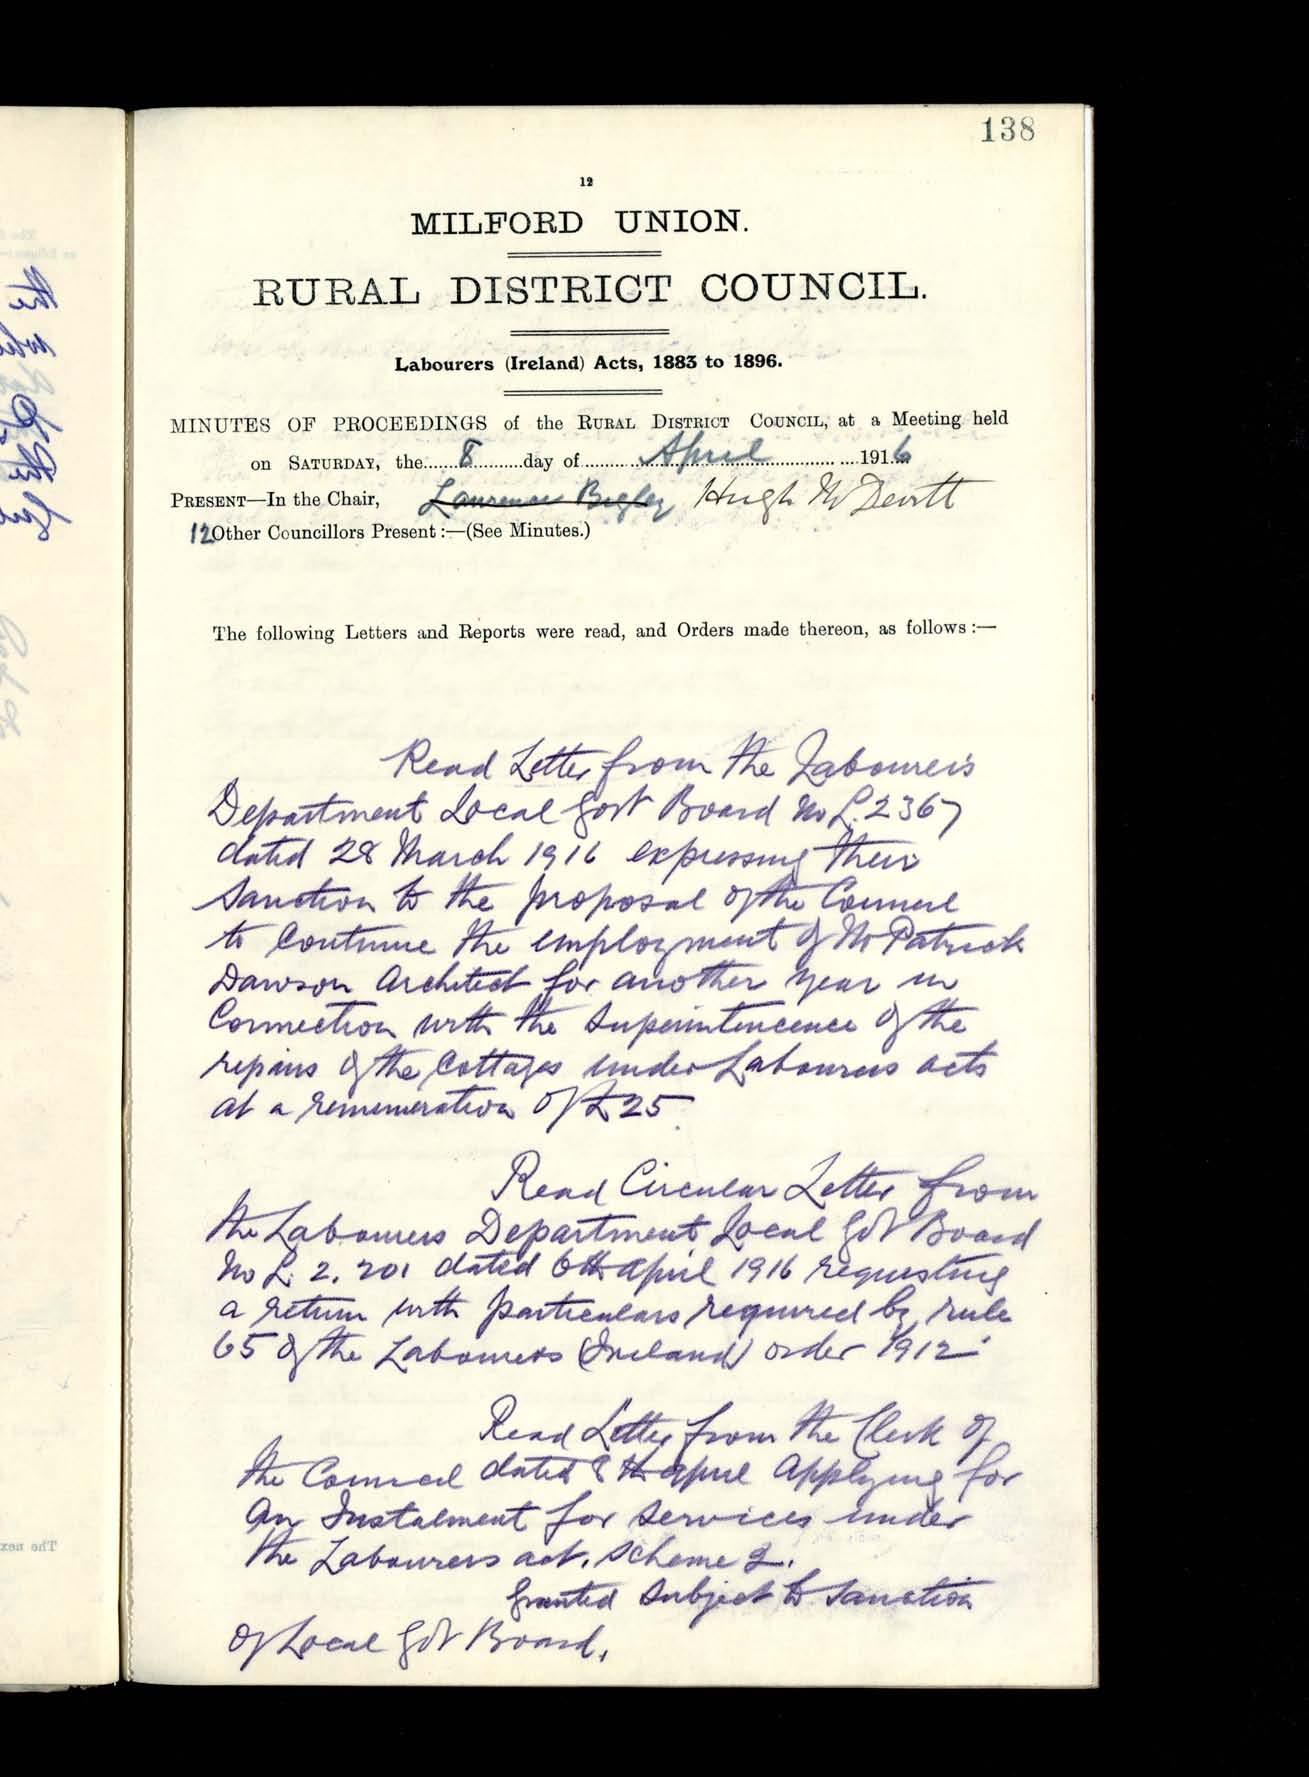 138
12
MILFORD UNION.
RURAL DISTRICT COUNCIL.
Labourers (Ireland) Acts, 1883 to 1896.
MINUTES OF PROCEEDINGS of the RURAL DISTRICT COUNCIL, at a Meeting held
on SATURDAY, the 8 day of April 1916
PRESENT—In the Chair, Laurence Bigley Hugh McDevitt
12 Other Councillors Present :—(See Minutes.)
The following Letters and Reports were read, and Orders made thereon, as follows :—
Read Letter from the Labourers
Department Local Govt Board No L. 2367
dated 28 March 1916 expressing their
sanction to the proposal of the Council
to continue the employment of Mr Patrick
Dawson Architect for another year in
Connection with the Superintencence of the
repairs of the Cottages under Labourers acts
at a remuneration of £25
Read Circular Letter from
the Labourers Department Local Govt Board
No L. 2. 201 dated 6th april 1916 requesting
a return with particulars required by rule
65 of the Labourers (Ireland) order 1912
Read Letter from the Clerk of
the Council dated 8th april applying for
an Instalment for services under
the Labourers act, scheme 2.
Granted subject to sanction
of Local Govt Board.
The nex